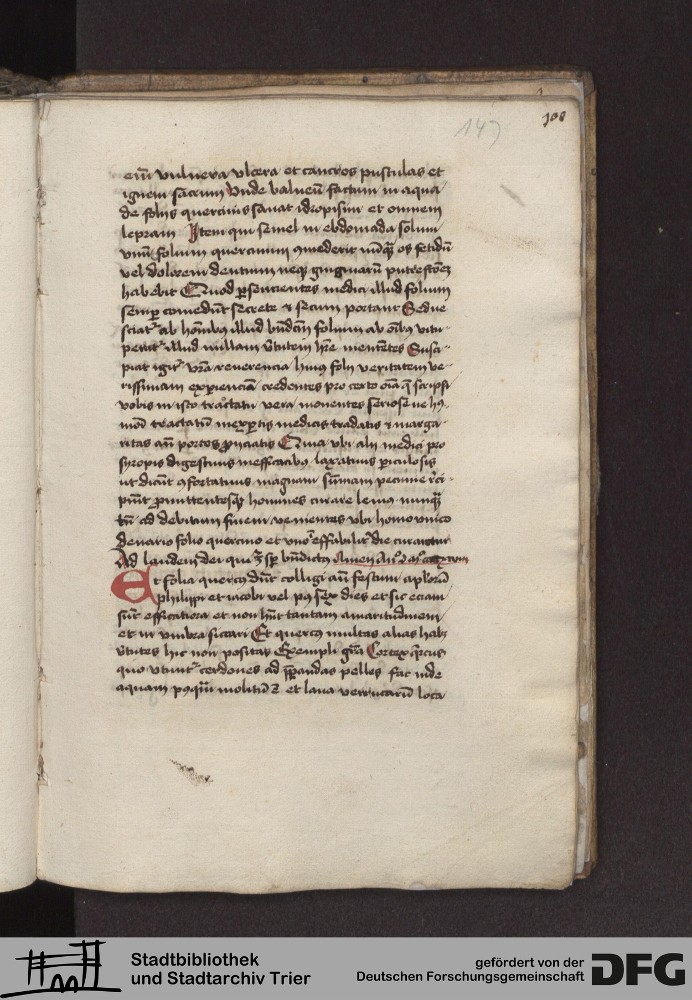 147
108
eiu vulnera vlcera et cancros pustulas et
ignem sacrum Vnde balneu factum in aqua
de foliis quercinis sanat idropisim et omnem
lepram Item qui semel in ebdomada solum
vnu folium quercinum
os fetidu
vel dolorem dentium neqꝫ gingiuaru
habebit Quod psencientes medici illud folium
semp comedut secrete et secum portant Sed ne
sciatr ab homibus illud
folium ab oibus
illud nullam vtutem hre mentetes Susci
piat igitr vra reuerencia huius folii veritatem ve
rissimam experiencia credentes pro certo oia q scripsi
vobis in isto tractatu vera monentes seriose ne
tractatu inexptis medicis tradatis et marga
ritas an porcos
Quia vbi alii medici pro
syropis digestiuis inefficacibꝫ laxatiuis piculosis
ut dicut ofortatiuis magnam sumam pecunie
piut pmittentesqꝫ homines curare
ad debitum finem venientes vbi homo vnico
denario folio quercino et
die curaretur
Ad laudem dei qui
Amen
Et folia quercus dnt colligi an festum aplorum
philippi et iacobi vel pꝰ sex dies et sic eciam
sut efficatiora et non hnt tantam amaritudinem
et in vmbra siccari Et quercꝰ multas alias habꝫ
vtutes hic non positas Exempli gra Cortex qrcus
quo vtuntr cerdones ad pparandas pelles fac inde
aquam
et laua verrucarum loca
Stadtbibliothek
und Stadtarchiv Trier
gefördert von der
Deutschen Forschungsgemeinschaft
DFG